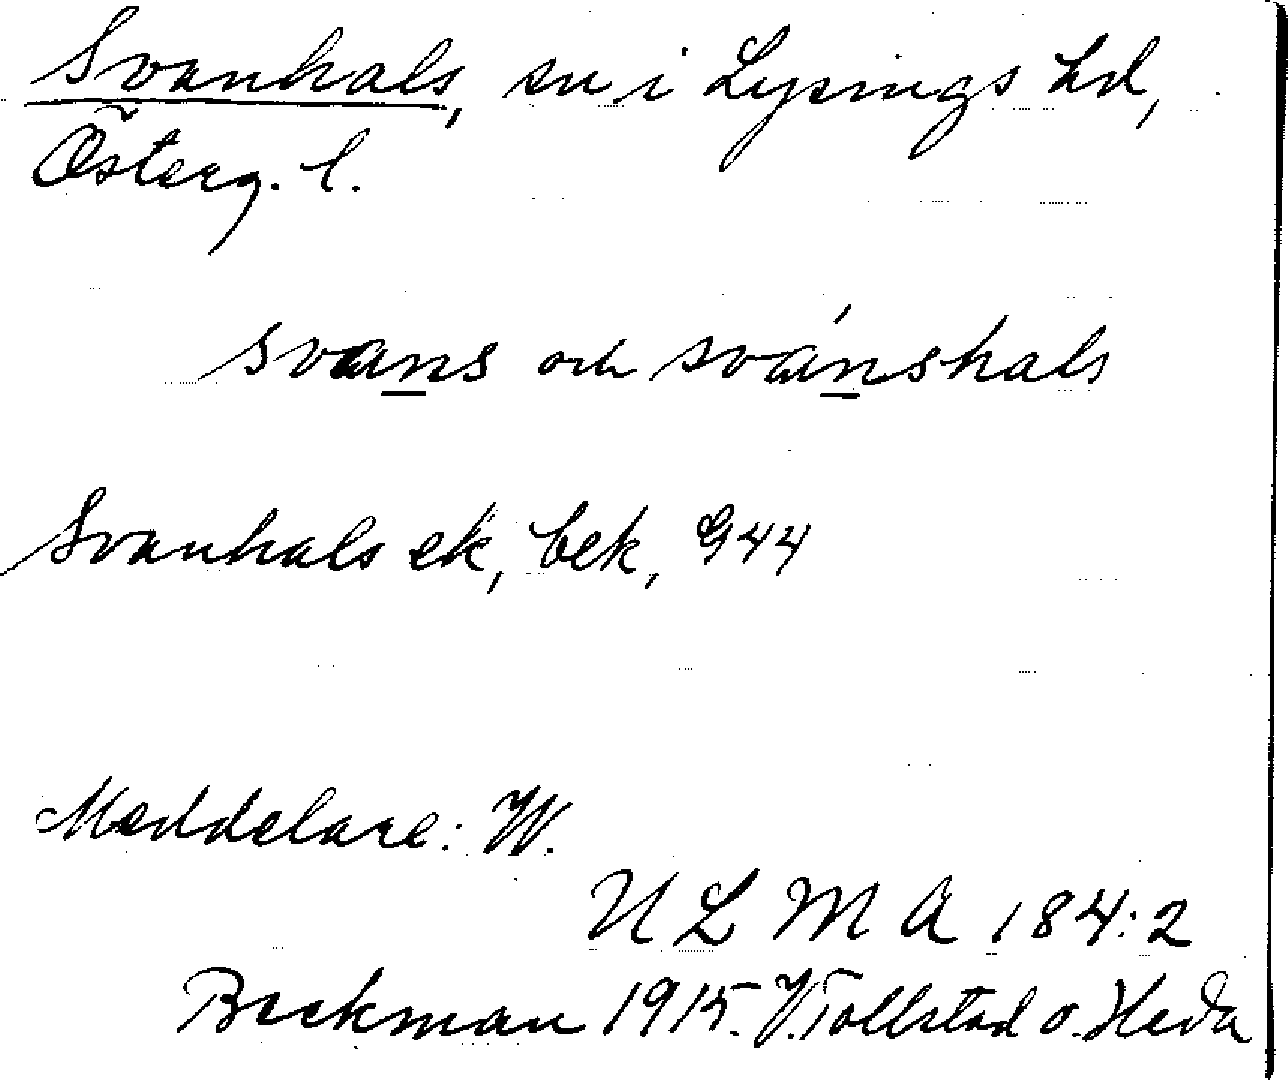 Svanhals, sn i Lysings hd,
Österg. l.
svans och svánshals
Svanhals ek, bek, G44
Meddelare: W.
ULMA 184:2
Beckman 1915. V. Tollstad o. Heda